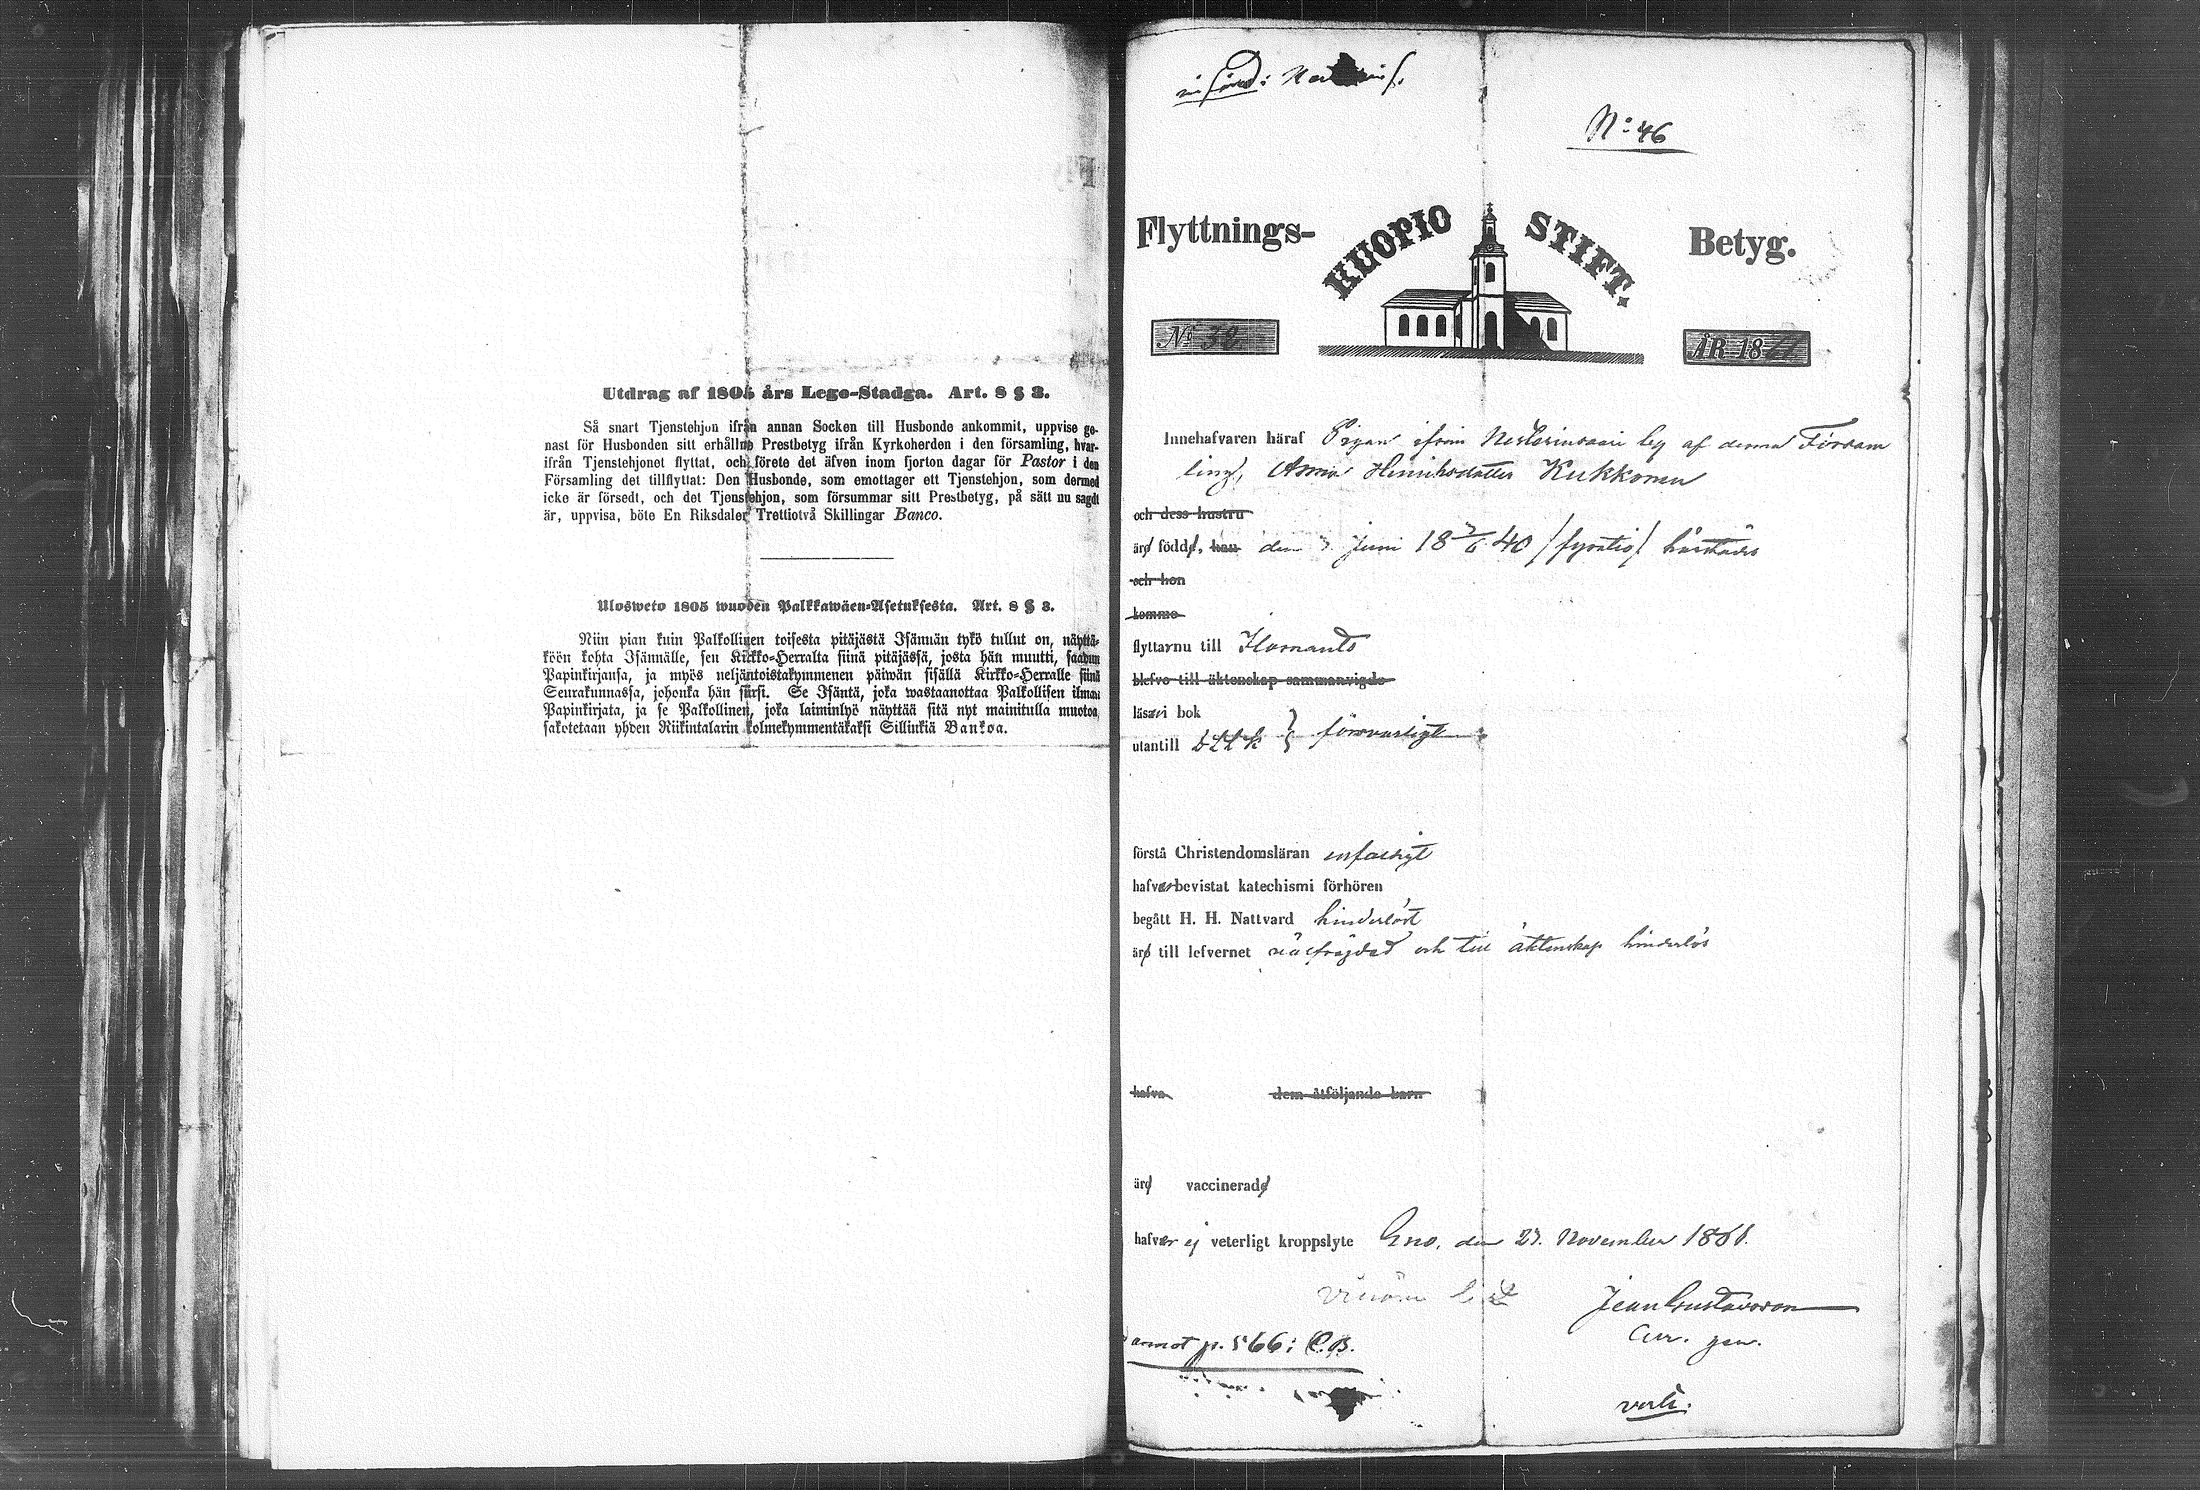 Utdrag af 1805 års Lego-Stadga. Art. 8 § 3.
Så snart Tjenstehjon ifrån annan Socken till Husbonde ankommit, uppvise ge-
nast för Husbonden sitt erhållne Prestbetyg ifrån Kyrkoherden i den församling, hvar-
ifrån Tjenstehjonet flyttat, och förete det äfven inom fjorton dagar för Pastor i den
Församling det tillflyttat: Den Husbonde, som emottager ett Tjenstehjon, som dermed
icke är försedt, och det Tjenstehjon, som försummar sitt Prestbetyg, på sätt nu sagdt
är, uppvisa, böte En Riksdaler Trettiotvå Skillingar Banco.
Ulosweto 1805 wuoden Palkkawäen-Asetuksesta. Art. 8 § 3.
Niin pian kuin Palkollinen toisesta pitäjästä Isännän tykö tullut on, näyttä-
köön kohta Isännälle, sen Kirkko-Herralta siinä pitäjässä, josta hän muutti, saadun
Papinkirjansa, ja myös neljäntoistakymmenen päiwän sisällä Kirkko-Herralle siinä
Seurakunnassa, johonka hän siirsi. Se Isäntä, joka wastaanottaa Palkollisen ilman
Papinkirjata, ja se Palkollinen, joka laiminlyö näyttää sitä nyt mainitulla muotoa,
sakotetaan yhden Riikintalarin kolmekymmentäkaksi Sillinkiä Bankoa.
N:o 46
Flyttnings- KUOPIO STIFT. Betyg.
N:o 32. ÅR 1861
Innehafvaren häraf Pigan ifrån Nesterinsaari by af denna Församling, Anna Henriksdotter Kukkonen
och dess hustru
äro födde, han den 7 Juni 18 7/6 40 /fyratio/ härstädes
och hon
komme
flyttarnu till Ilomants
blefvo till äktenskap sammanvigde
läsa i bok
utantill } försvarligt
förstå Christendomsläran enfaldigt
hafver bevistat katechismi förhören
begått H. H. Nattvard hinderlöst
äro till lefvernet välfrägdad och till äktenskap hinderlös
hafva dem åtföljande barn
äro vaccinerade
hafver ej veterligt kroppslyte Eno, den 23. November 1861.
Jean Gustavson
annot p. 566 i C.B.
verte.